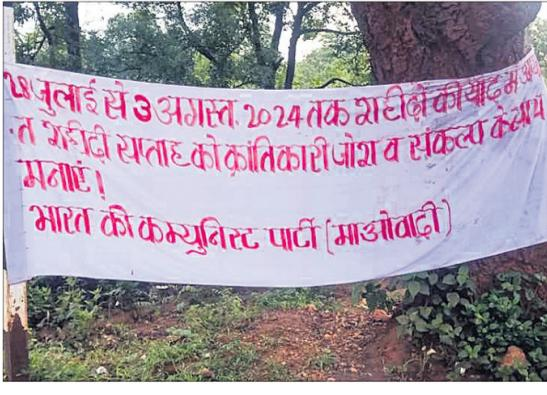 28 जुलाई से 3 अगस्त, 2024 तक शहीदों की याद में
शहीदी सप्ताह को क्रांतिकारी जोश व संकल्प के साथ
मनाएं!
भारत की कम्युनिस्ट पार्टी (माओवादी)